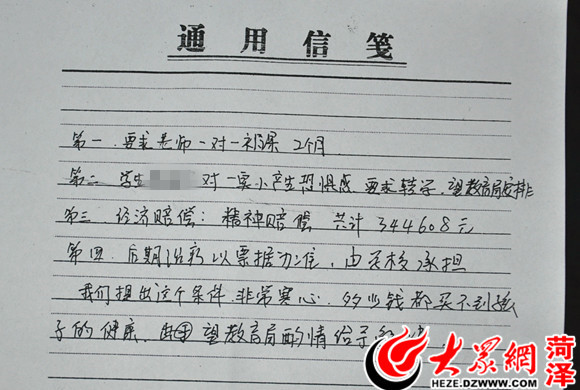 通用信笺
第一.要求老师一对一补课 2个月
第二.学生 对一实小产生恐惧感.要求转学.望教育局安排
第三.经济赔偿:精神赔偿 共计344608元
第四.后期治疗以票据为准,由学校承担
我们提出这个条件.非常寒心.多少钱都买不到孩
子的健康. 望教育局酌情给予
大众網 菏泽
HEZE.DZWWW.COM